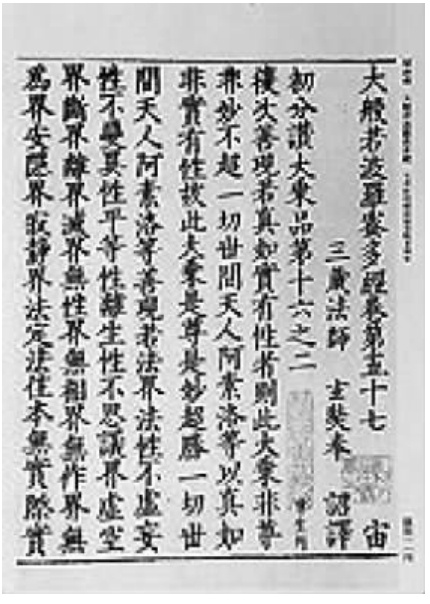 大般若波羅蜜多經卷第五十七 宙
三藏法師 玄奘奉 詔譯
初分讚大乘品第十六之二
復次善現若真如實有性者則此大乘非尊
非妙不超一切世間天人阿素洛等以真如
非實有性故此大乘是尊是妙超勝一切世
間天人阿素洛等善現若法界法性不虛妄
性不變異性平等性離生性不思議界虛空
界斷界離界滅界無性界無相界無作界無
為界安隱界寂靜界法定法住本無實際實